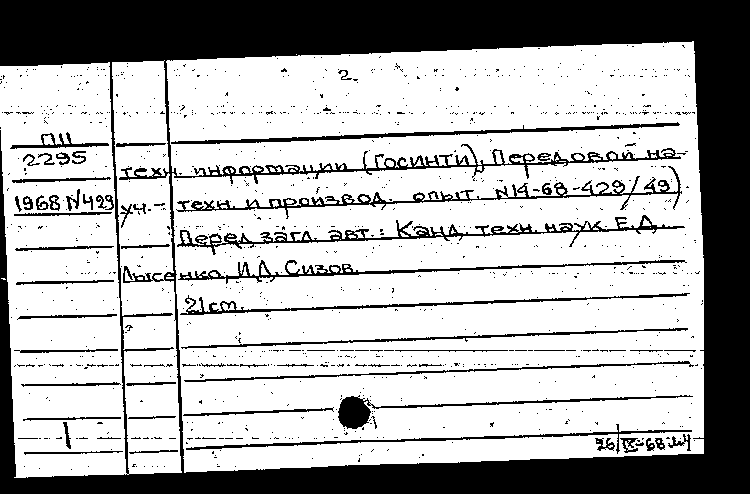 2.
ПШ
2295
1968 N429
техн. информации (ГОСИНТИ), Передовой на-
уч.- техн. и производ. опыт. N14-68-429/49)
Перед загл. авт.: Канд. техн. наук Е.Д.
Лысенко, И.Д. Сизов.
21 cm.
26/IX-68